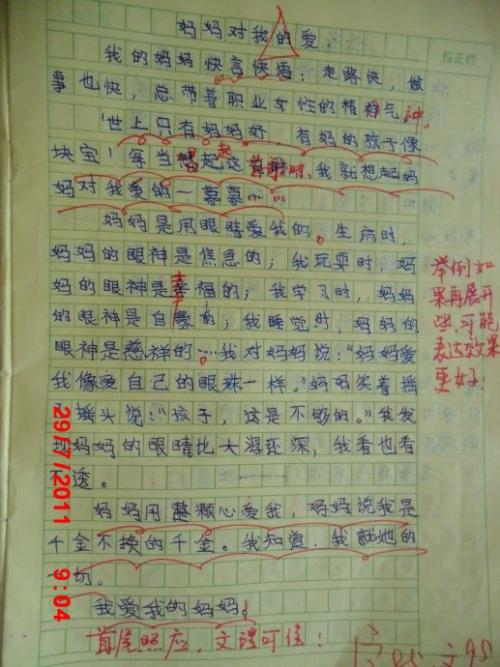 妈妈对我的爱
我的妈妈快言快语:走路快,做
事也快,总带着职业女性的精气神。
“世上只有妈妈好,有妈的孩子像
块宝!每当想起这首歌时,我就想起妈
妈对我爱的一幕幕……
妈妈是用眼睛爱我的。生病时,
妈妈的眼神是焦急的;我玩耍时,妈
妈的眼神是幸福的;我学习时,妈妈
的眼神是自豪的;我睡觉时,妈妈的
眼神是慈祥的…我对妈妈说:“妈妈爱
我像爱自己的眼珠一样。”妈妈笑着摇
摇头说:“孩子,这是不够的。”我发
现妈妈的眼睛比大海还深,我看也看
不透。
妈妈用整颗心爱我,妈妈说我是
千金不换的千金。我知道,我就她的
一切。
我爱我的妈妈!
举例如
果再展开
些,可能
表达效果
更好!
首尾照应,文理可佳!
批正栏
29/7/2011 9:04